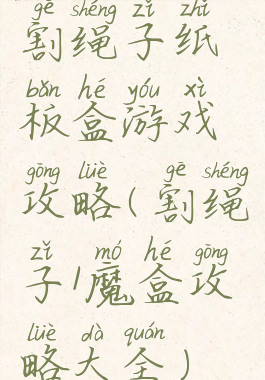 gē shéng zǐ zhǐ
割绳子纸
bǎn hé yóu xì
板盒游戏
gōng lüè gē shéng
攻略(割绳
zǐ mó hé gōng
子/魔盒攻
lüè dà quán
略大全)